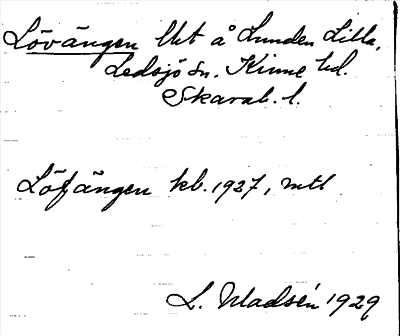 Lövängen lht å Lunden Lilla,
Ledsjö sn. Kinne hd.
Skarab. l.
Löfängen kb. 1927, mtl
L. Uladsén 1929